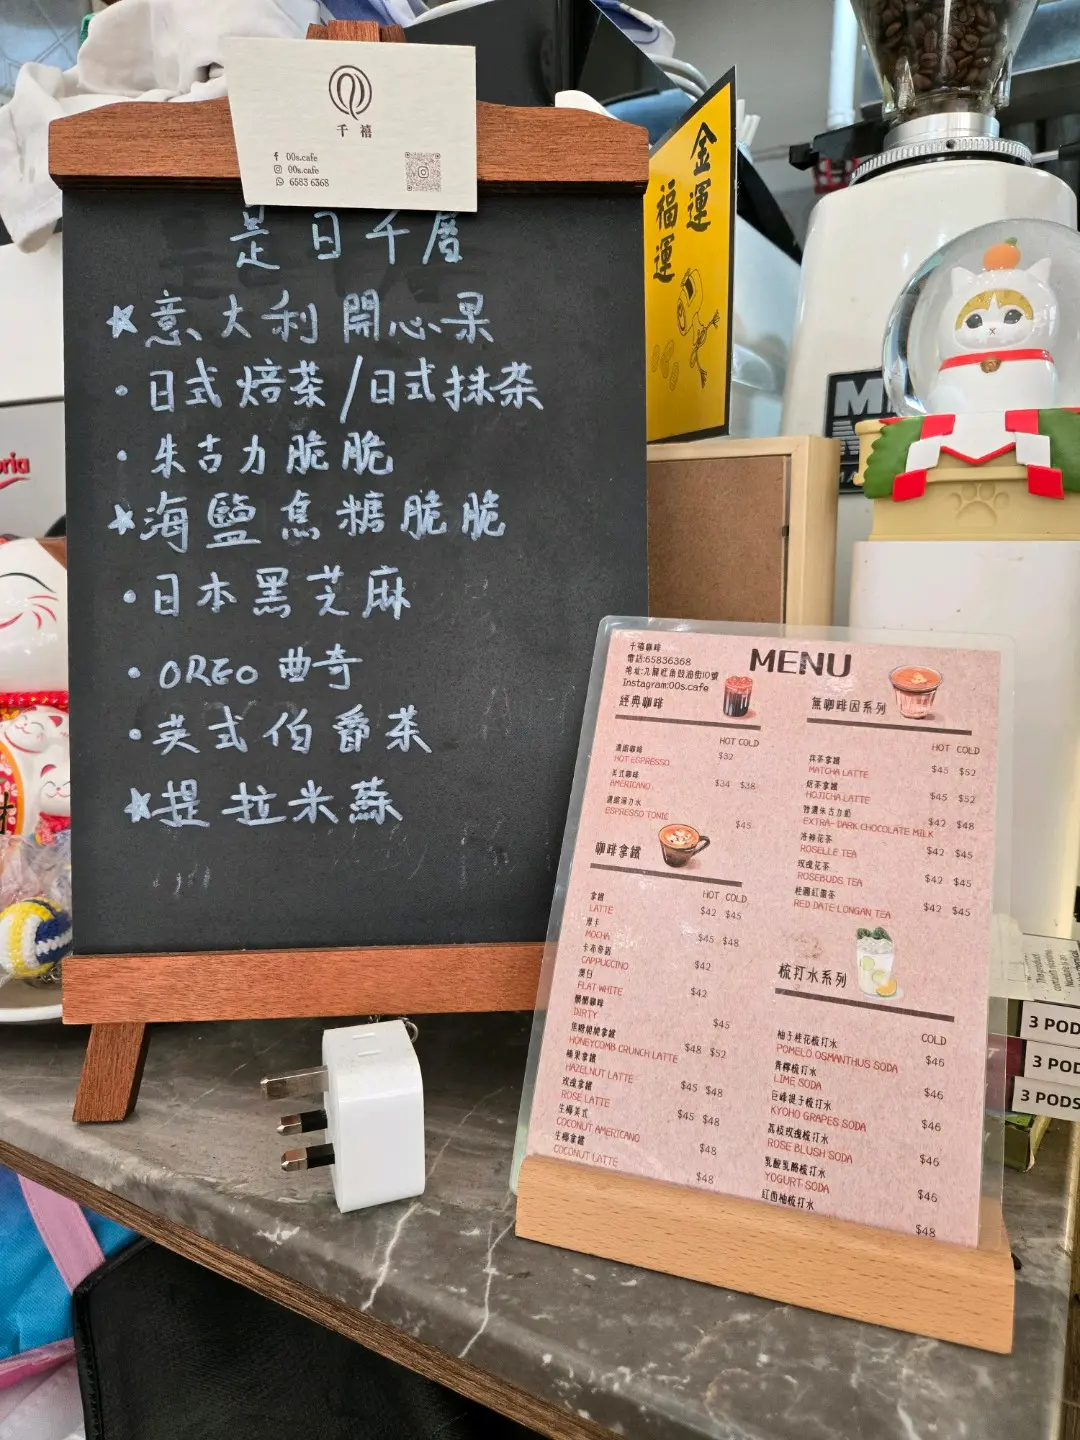 千禧
00s.cafe
00s.cafe
6583 6368
是日千層
★意大利開心果
•日式焙茶/日式抹茶
•朱古力脆脆
★海鹽焦糖脆脆
•日本黑芝麻
•OREO曲奇
•英式伯爵茶
★提拉米蘇
金運
福運
千禧咖啡
電話:65836368
地址:九龍紅磡鼓油街10號
Instagram:00s.cafe
MENU
經典咖啡
HOT COLD
濃縮咖啡
HOT ESPRESSO $32
美式咖啡
AMERICANO $34 $38
濃縮湯力水
ESPRESSO TONIC $45
咖啡拿鐵
HOT COLD
拿鐵
LATTE $42 $45
摩卡
MOCHA $45 $48
卡布奇諾
CAPPUCCINO $42
澳白
FLAT WHITE $42
髒髒咖啡
DIRTY $45
焦糖燒燒拿鐵
HONEYCOMB CRUNCH LATTE $48 $52
榛果拿鐵
HAZELNUT LATTE $45 $48
玫瑰拿鐵
ROSE LATTE $45 $48
生椰美式
COCONUT AMERICANO $48
生椰拿鐵
COCONUT LATTE $48
無咖啡因系列
HOT COLD
抹茶拿鐵
MATCHA LATTE $45 $52
焙茶拿鐵
HOJICHA LATTE $45 $52
特濃朱古力奶
EXTRA- DARK CHOCOLATE MILK $42 $48
洛神花茶
ROSELLE TEA $42 $45
玫瑰花茶
ROSEBUDS TEA $42 $45
桂圓紅棗茶
RED DATE LONGAN TEA $42 $45
梳打水系列
COLD
柚子桂花梳打水
POMELO OSMANTHUS SODA $46
青檸梳打水
LIME SODA $46
巨峰提子梳打水
KYOHO GRAPES SODA $46
荔枝玫瑰梳打水
ROSE BLUSH SODA $46
乳酸乳酪梳打水
YOGURT SODA $46
紅西柚梳打水
$48
3 POD
3 POD
3 PODS